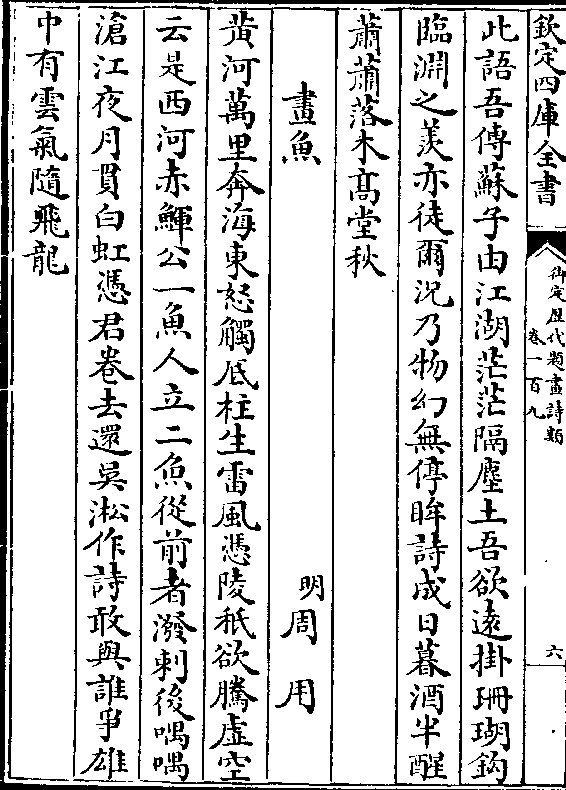 欽定四庫全書
御定歴代題畫詩類
卷一百九
六
此語吾傳蘇子由江湖茫茫隔塵土吾欲遠掛珊瑚鈎
臨淵之羨亦徒爾況乃物幻無停眸詩成日暮酒半醒
蕭蕭落木髙堂秋
畫魚
明周用
黄河萬里奔海東怒觸底柱生雷風憑陵秖欲騰虛空
云是西河赤鯶公一魚人立二魚從前者潑剌後喁喁
滄江夜月貫白虹憑君卷去還吳淞作詩敢與誰爭雄
中有雲氣隨飛龍